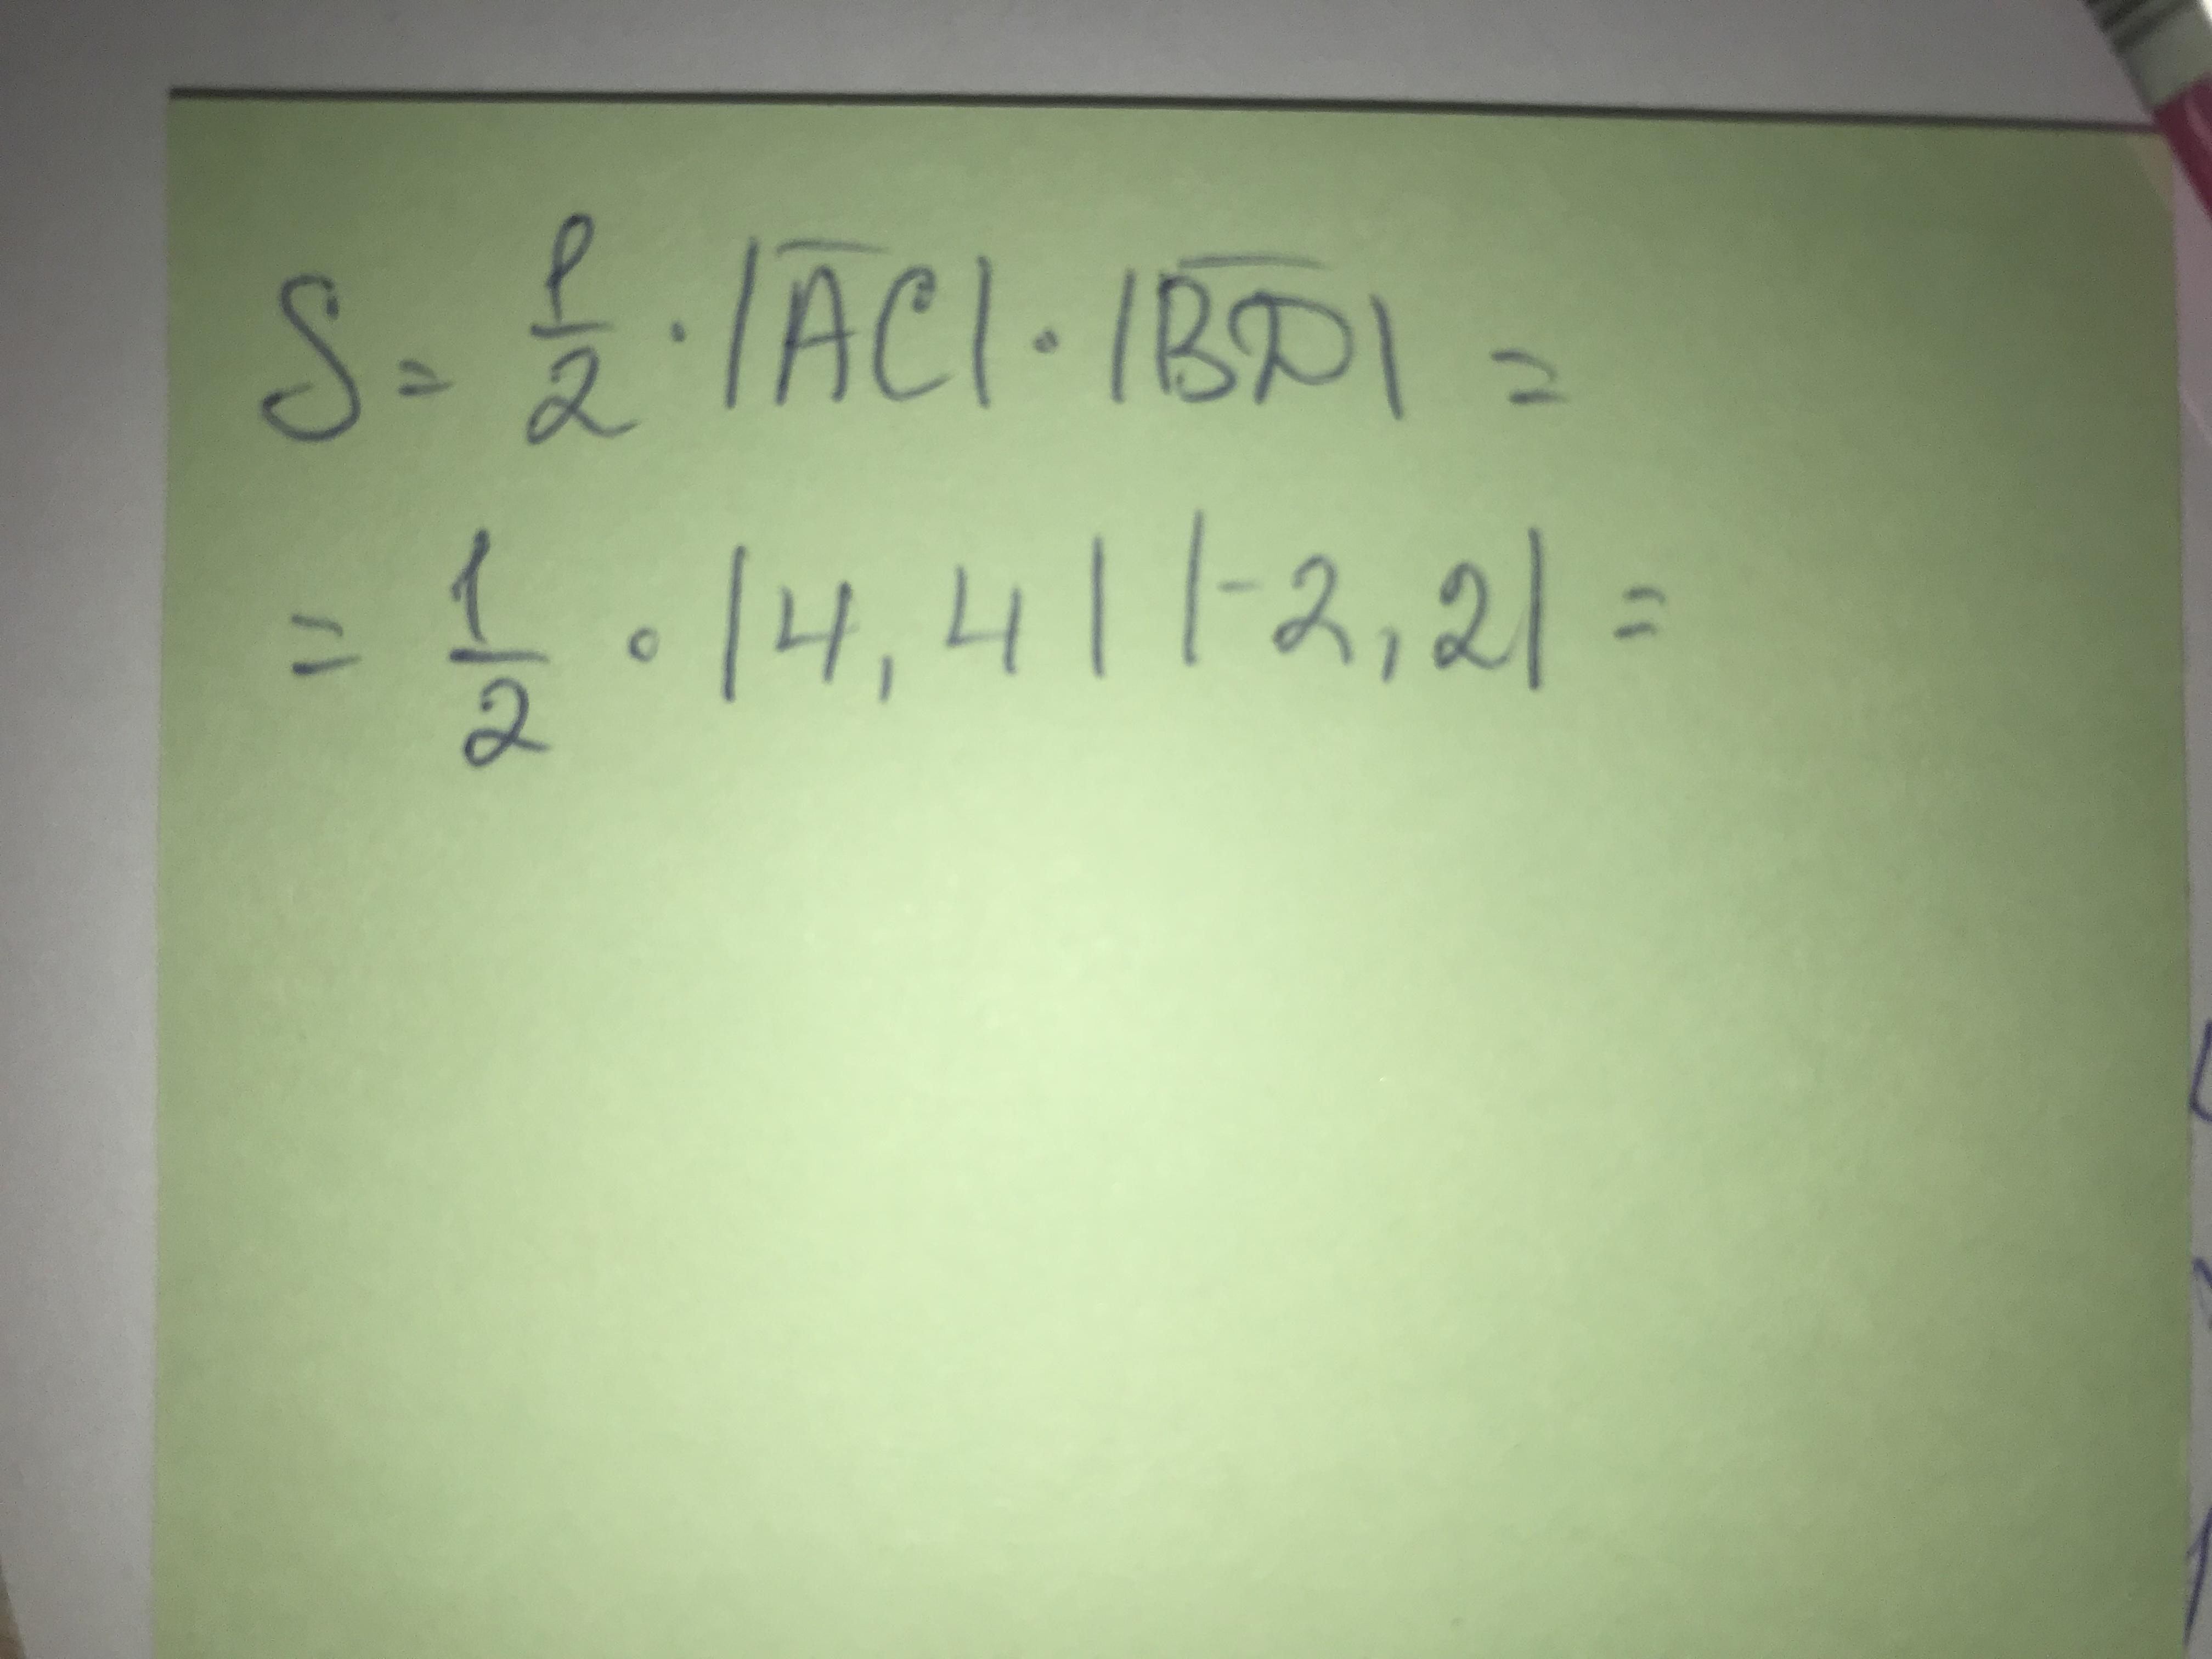 S = 1/2 · |A̅C̅| · |B̅D̅| =
= 1/2 · |4,4| |-2,2| =